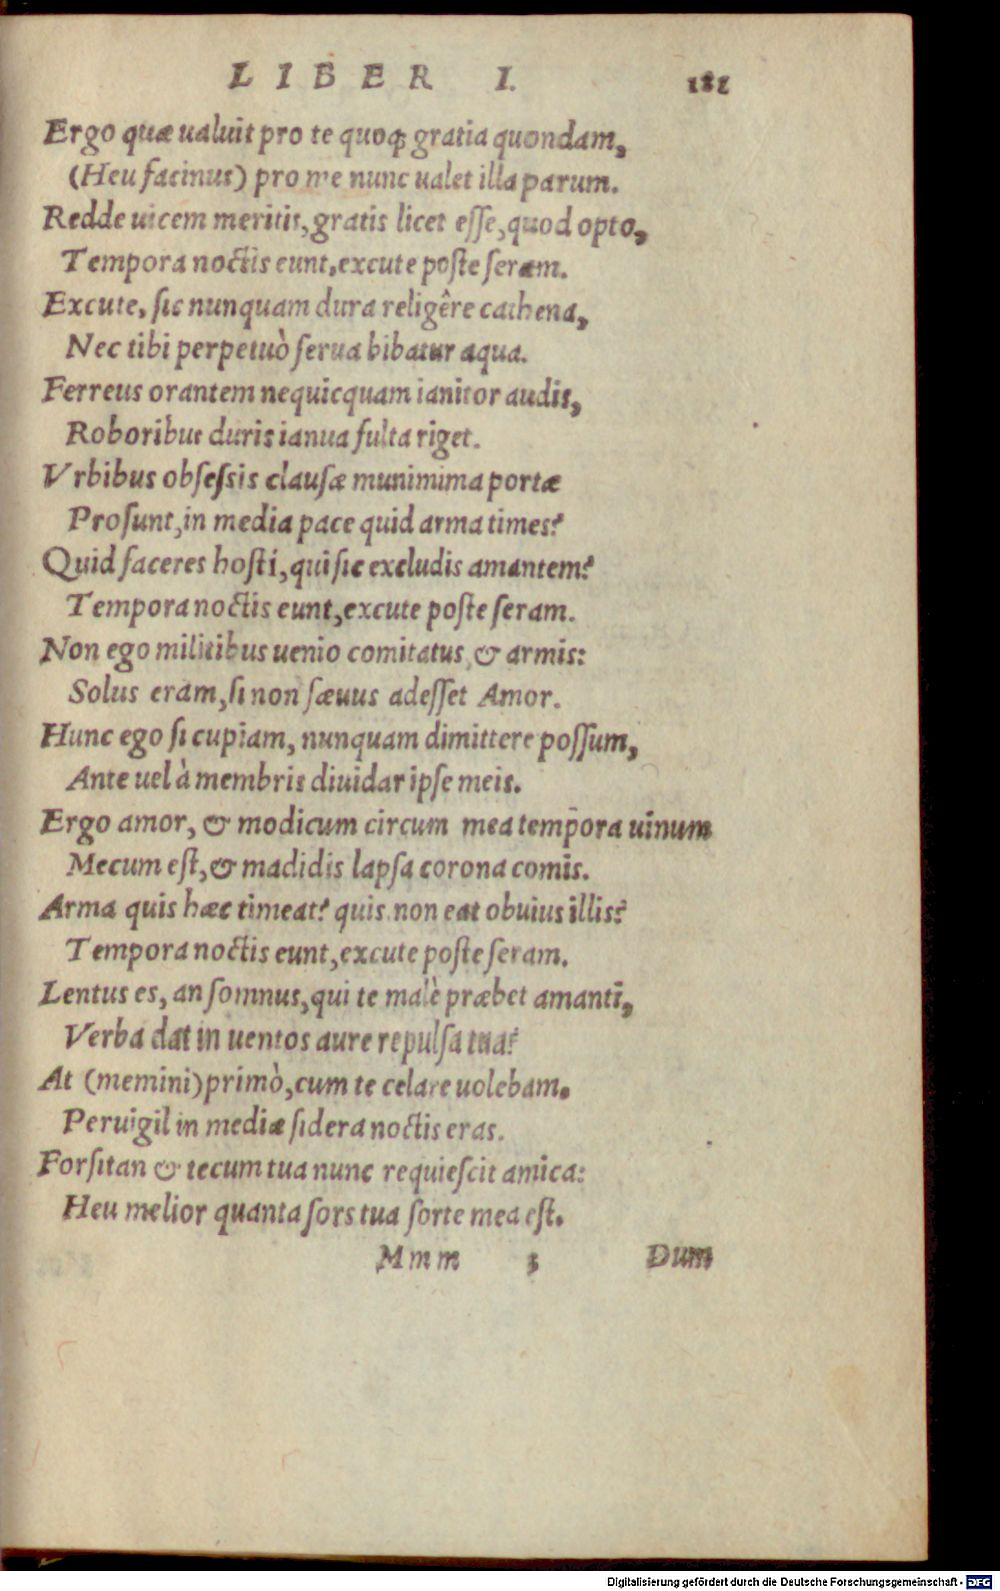 LIBER I. 181
Ergo quæ ualuit pro te quoq; gratia quondam,
(Heu facinus) pro me nunc ualet illa parum.
Redde uicem meritis, gratis licet eſſe, quod opto,
Tempora noctis eunt, excute poſte ſeram.
Excute, ſic nunquam dura religêre cathena,
Nec tibi perpetuò ſerua bibatur aqua.
Ferreus orantem nequicquam ianitor audis,
Roboribus duris ianua fulta riget.
Vrbibus obſeſsis clauſæ munimima portæ
Proſunt, in media pace quid arma times?
Quid faceres hoſti, qui ſic excludis amantem?
Tempora noctis eunt, excute poſte ſeram.
Non ego militibus uenio comitatus, & armis:
Solus eram, ſi non ſæuus adeſſet Amor.
Hunc ego ſi cupiam, nunquam dimittere poſſum,
Ante uel à membris diuidar ipſe meis.
Ergo amor, & modicum circum mea tempora uinum
Mecum eſt, & madidis lapſa corona comis.
Arma quis hæc timeat? quis non eat obuius illis?
Tempora noctis eunt, excute poſte ſeram.
Lentus es, an ſomnus, qui te malè præbet amanti,
Verba dat in uentos aure repulſa tua?
At (memini) primò, cum te celare uolebam.
Peruigil in mediæ ſidera noctis eras.
Forſitan & tecum tua nunc requieſcit amica:
Heu melior quanta ſors tua ſorte mea eſt.
Mmm 3 Dum
Digitalisierung gefördert durch die Deutsche Forschungsgemeinschaft - DFG